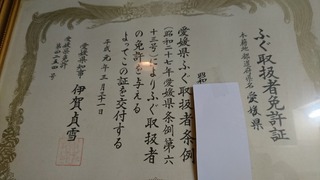 ふぐ取扱者免許証
本籍地都道府県名 愛媛県
昭和
愛媛県ふぐ取扱者条例
(昭和二十七年愛媛県条例第六
十三号)によりふぐ取扱者
の免許を与える
よってこの証を交付する
平成元年三月二十一日
愛媛県知事 伊賀貞雪
愛媛県免許